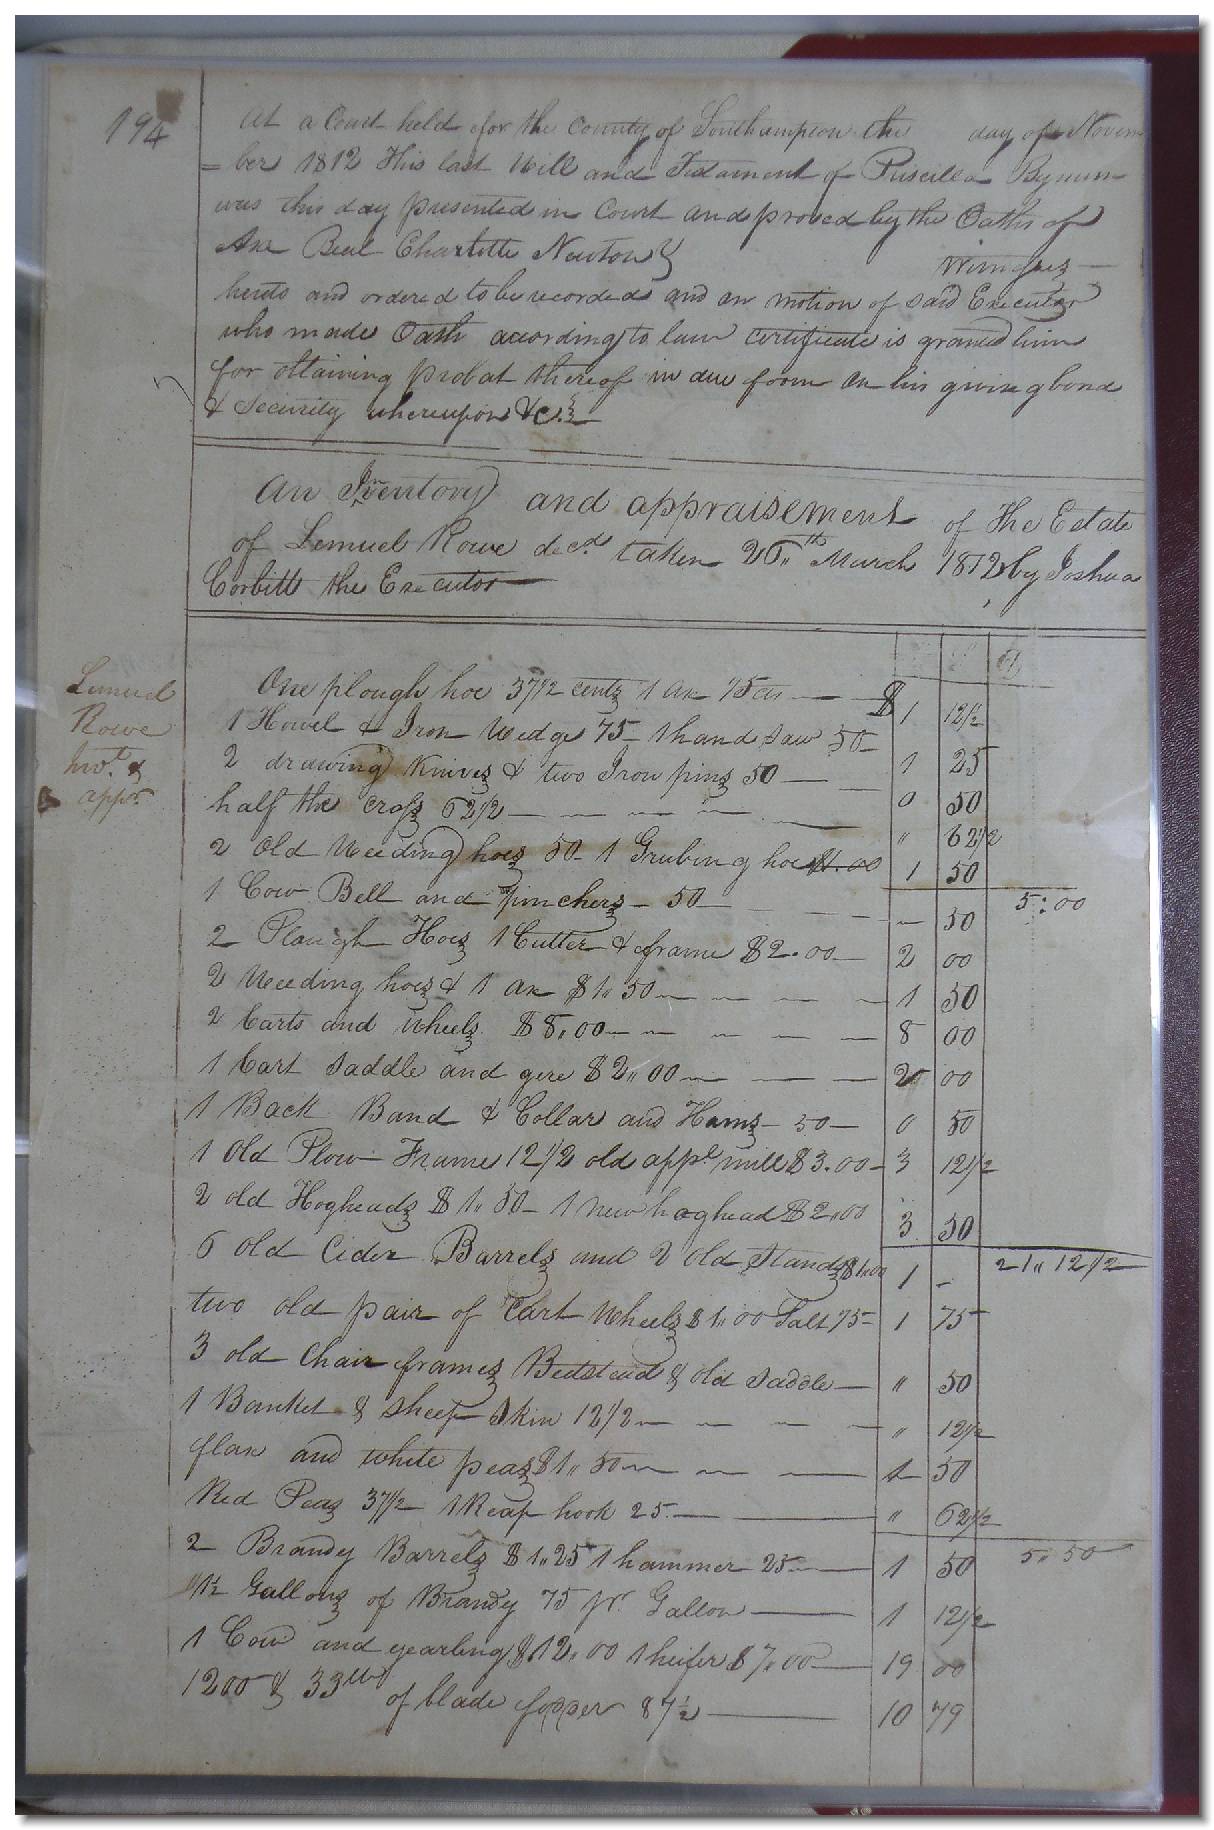 194
At a Court held for the County of Southampton the day of Novem
= ber 1812 This last Will and Testament of Priscilla Bynum
was this day presented in Court and proved by the Oaths of
Axe Beal Charlotte Newton
hereto and ordered to be recorded and on motion of said Executor
who made Oath according to law certificate is granted him
for obtaining probat thereof in due form on his giving bond
& Security whereupon &c.
An Inventory and appraisement of The Estate
of Lemuel Rowe decd. taken 26th March 1812 by Joshua
Corbitt the Executor
Lemuel
Rowe
Invt. &
appr.
One plough hoe 37½ cents 1 ax 75 cts — $ 1 12½
1 Howel & Iron Wedge 75 — 1 hand saw 50 — 1 25
2 drawing Knives & two Iron pins 50 — 0 50
half the Cross 62½ — " 62½
2 Old Weeding hoes 50 - 1 Grubing hoe $1.00 1 50
5:00
1 Cow Bell and pinchers - 50 — 50
2 Plough Hoes 1 Cutter & frame $2.00 — 2 00
2 Weeding hoes & 1 ax $1"50 — 1 50
2 Carts and wheels $8,00 — 8 00
1 Cart saddle and gere $2"00 — 2 00
1 Back Band & Collar and Hams - 50 — 0 50
1 Old Plow Frame 12½ old appl mill $3.00 - 3 12½
2 old Hogheads $1"50 - 1 new hoghead $2"00 3 50
21"12½
6 old Cider Barrels and 2 old Stands $1"00 1 -
two old pair of Cart Wheels $1"00 Salt 75 - 1 75
3 old Chair frames Bedstead & old saddle — " 50
1 Banket & sheep skin 12½ — " 12½
flax and white peas $1"50 — 1 50
Red Peas 37½ 1 Reap hook 25 — " 62½
5"50
2 Brandy Barrels $1"25 1 hammer 25 — 1 50
1½ Gallons of Brandy 75 pr. Gallon — 1 12½
1 Cow and yearling $12"00 1 heifer $7"00 — 19 00
1200 & 33 lbs of blade fopper 87½ — 10 79